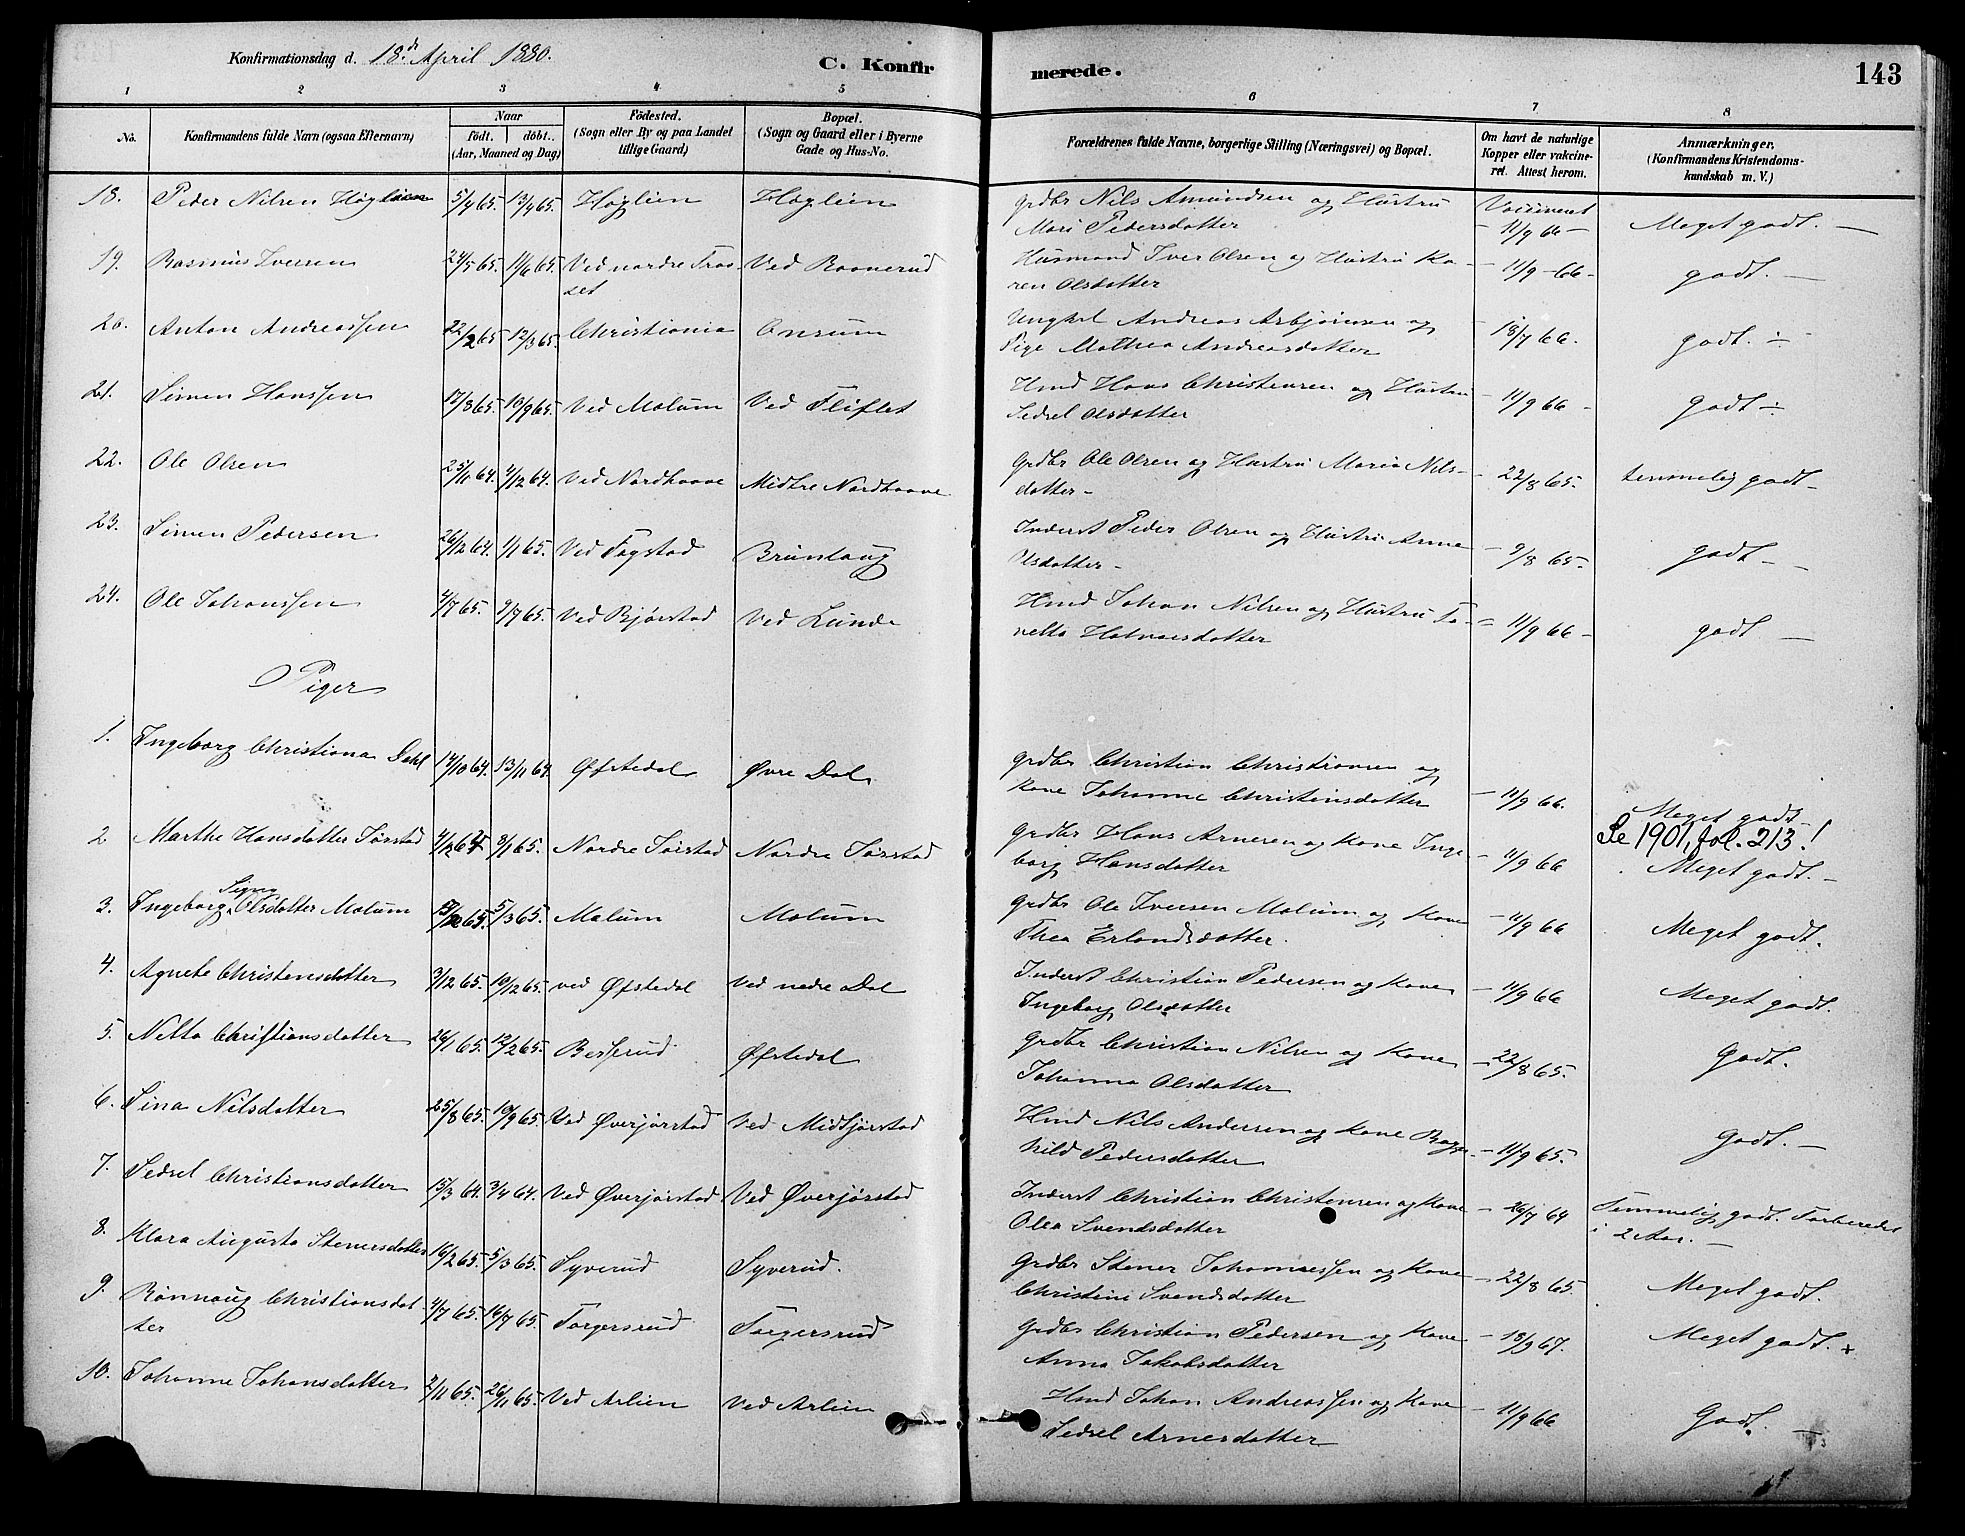 Konfirmationsdag d. 18.de April 1880.
C. Konfirmerede.
143
1 2 3 4 5 6 7 8
No.
Konfirmandens fulde Navn (ogsaa Efternavn)
Naar
födt. döbt.
(Aar, Maaned og Dag)
Födested.
(Sogn eller By og paa Landet
tillige Gaard)
Bopæl.
(Sogn og Gaard eller i Byerne
Gade og Hus-No.
Forældrenes fulde Navne, borgerlige Stilling (Næringsvei) og Bopæl.
Om havt de naturlige
Kopper eller vakcine-
ret. Attest herom.
Anmærkninger.
(Konfirmandens Kristendoms-
kundskab m. V.)
18. Peder Nilsen Høglien 5/4 65. 13/4 65. Høglien Høglien Grdbr Nils Amundsen og Hustru Vaccineret Meget godt. —
Mari Pedersdatter — 11/9 66 —
19. Rasmus Iversen 24/5 65. 11/6 65. Ved nordre Fros- Ved Boonerud Husmand Iver Olsen og Hustru Ka- — 11/9 — 66 — godt. —
set ren Olsdatter
20. Anton Andreassen 22/2 65 12/3 65. Christiania Onsum Ungkl Andreas Asbjørnsen og — 18/7 66. godt. —
Pige Mathea Andreasdatter
21. Simen Hanssen 17/8 65. 10/9 65. Ved Molum Ved Fliflet Hmd Hans Christensen og Hustru — 11/9 66 — godt —
Sedsel Olsdatter
22. Ole Olsen 25/11 64. 4/12 64. Ved Nordhoove Midtre Nordhoove Grdbr Ole Olsen og Hustru Maria Nils- — 22/8 65. temmelig godt —
datter —
23. Simen Pedersen 26/12 64. 1/1 65. Ved Fogstad Brunlaug Inderst Peder Olsen og Hustru Anne — 9/8 65 — godt —
Olsdatter —
24. Ole Johanssen 4/7 65. 9/7 65. Ved Bjørstad Ved Lunde Hmd Johan Nilsen og Hustru Ja- — 11/9 66 — godt —
netta Halvorsdatter
Piger
1. Ingeborg Christiana Dahl 14/10 64. 13/11 64. Øfstedal Øvre Dal Grdbr Christian Christiansen og
Kone Johanne Christinsdatter — 11/9 66. Meget godt
Se 1901, fol. 213!
2 Marthe Hansdatter Sørstad 4/12 64 8/1 65. Nordre Sørstad Nordre Sørstad Grdbr Hans Arnesen og Kone Inge
borg Hansdatter — 11/9 66 Meget godt. —
Signy
3. Ingeborg Olsdatter Molum 13/2 65. 5/3 65. Molum Molum Grdbr Ole Iversen Molum og Kone — 11/9 66 Meget godt.
Thea Erlandsdatter.
4. Agnete Christensdatter 3/12 65. 10/12 65. ved Øfstedal Ved nedre Dal Inderst Christian Pedersen og Kone — 11/9 66 Meget godt.
Ingeborg Olsdatter
5. Netta Christiansdatter 26/1 65. 12/2 65. Besserud Øfstedal Grdbr Christian Nilsen og Kone — 22/8 65. Godt.
Johanna Olsdatter
6. Sina Nilsdatter 25/8 65. 10/9 65. Ved Øverjørstad Ved Midtjørstad Hmd Nils Andersen og Kone Ragn-
hild Pedersdatter — 11/9 65. Godt. —
7. Sedsel Christiansdatter 15/3 64. 3/4 64. Ved Øverjørstad Ved Øverjørstad Inderst Christian Christensen og Kone — 26/7 64 Temmelig godt. Forberedes
Olea Svendsdatter i 2 Aar. —
8. Klara Augusta Stenersdatter 16/2 65. 5/3 65. Syverud Syverud. Grdbr Stener Johannessen og Kone — 22/8 65. Meget godt.
Christine Svendsdatter
9. Rønnaug Christiansdat- 4/7 65. 16/7 65. Torgersrud Torgersrud Grdbr Christian Pedersen og Kone — 18/9 67. Meget godt. +
ter Anna Jakobsdatter
10. Johanne Johansdatter 2/11 65. 26/11 65. Ved Arlien Ved Arlien Hmd Johan Andreassen og Kone — 11/9 66 Godt. —
Sedsel Arnesdatter